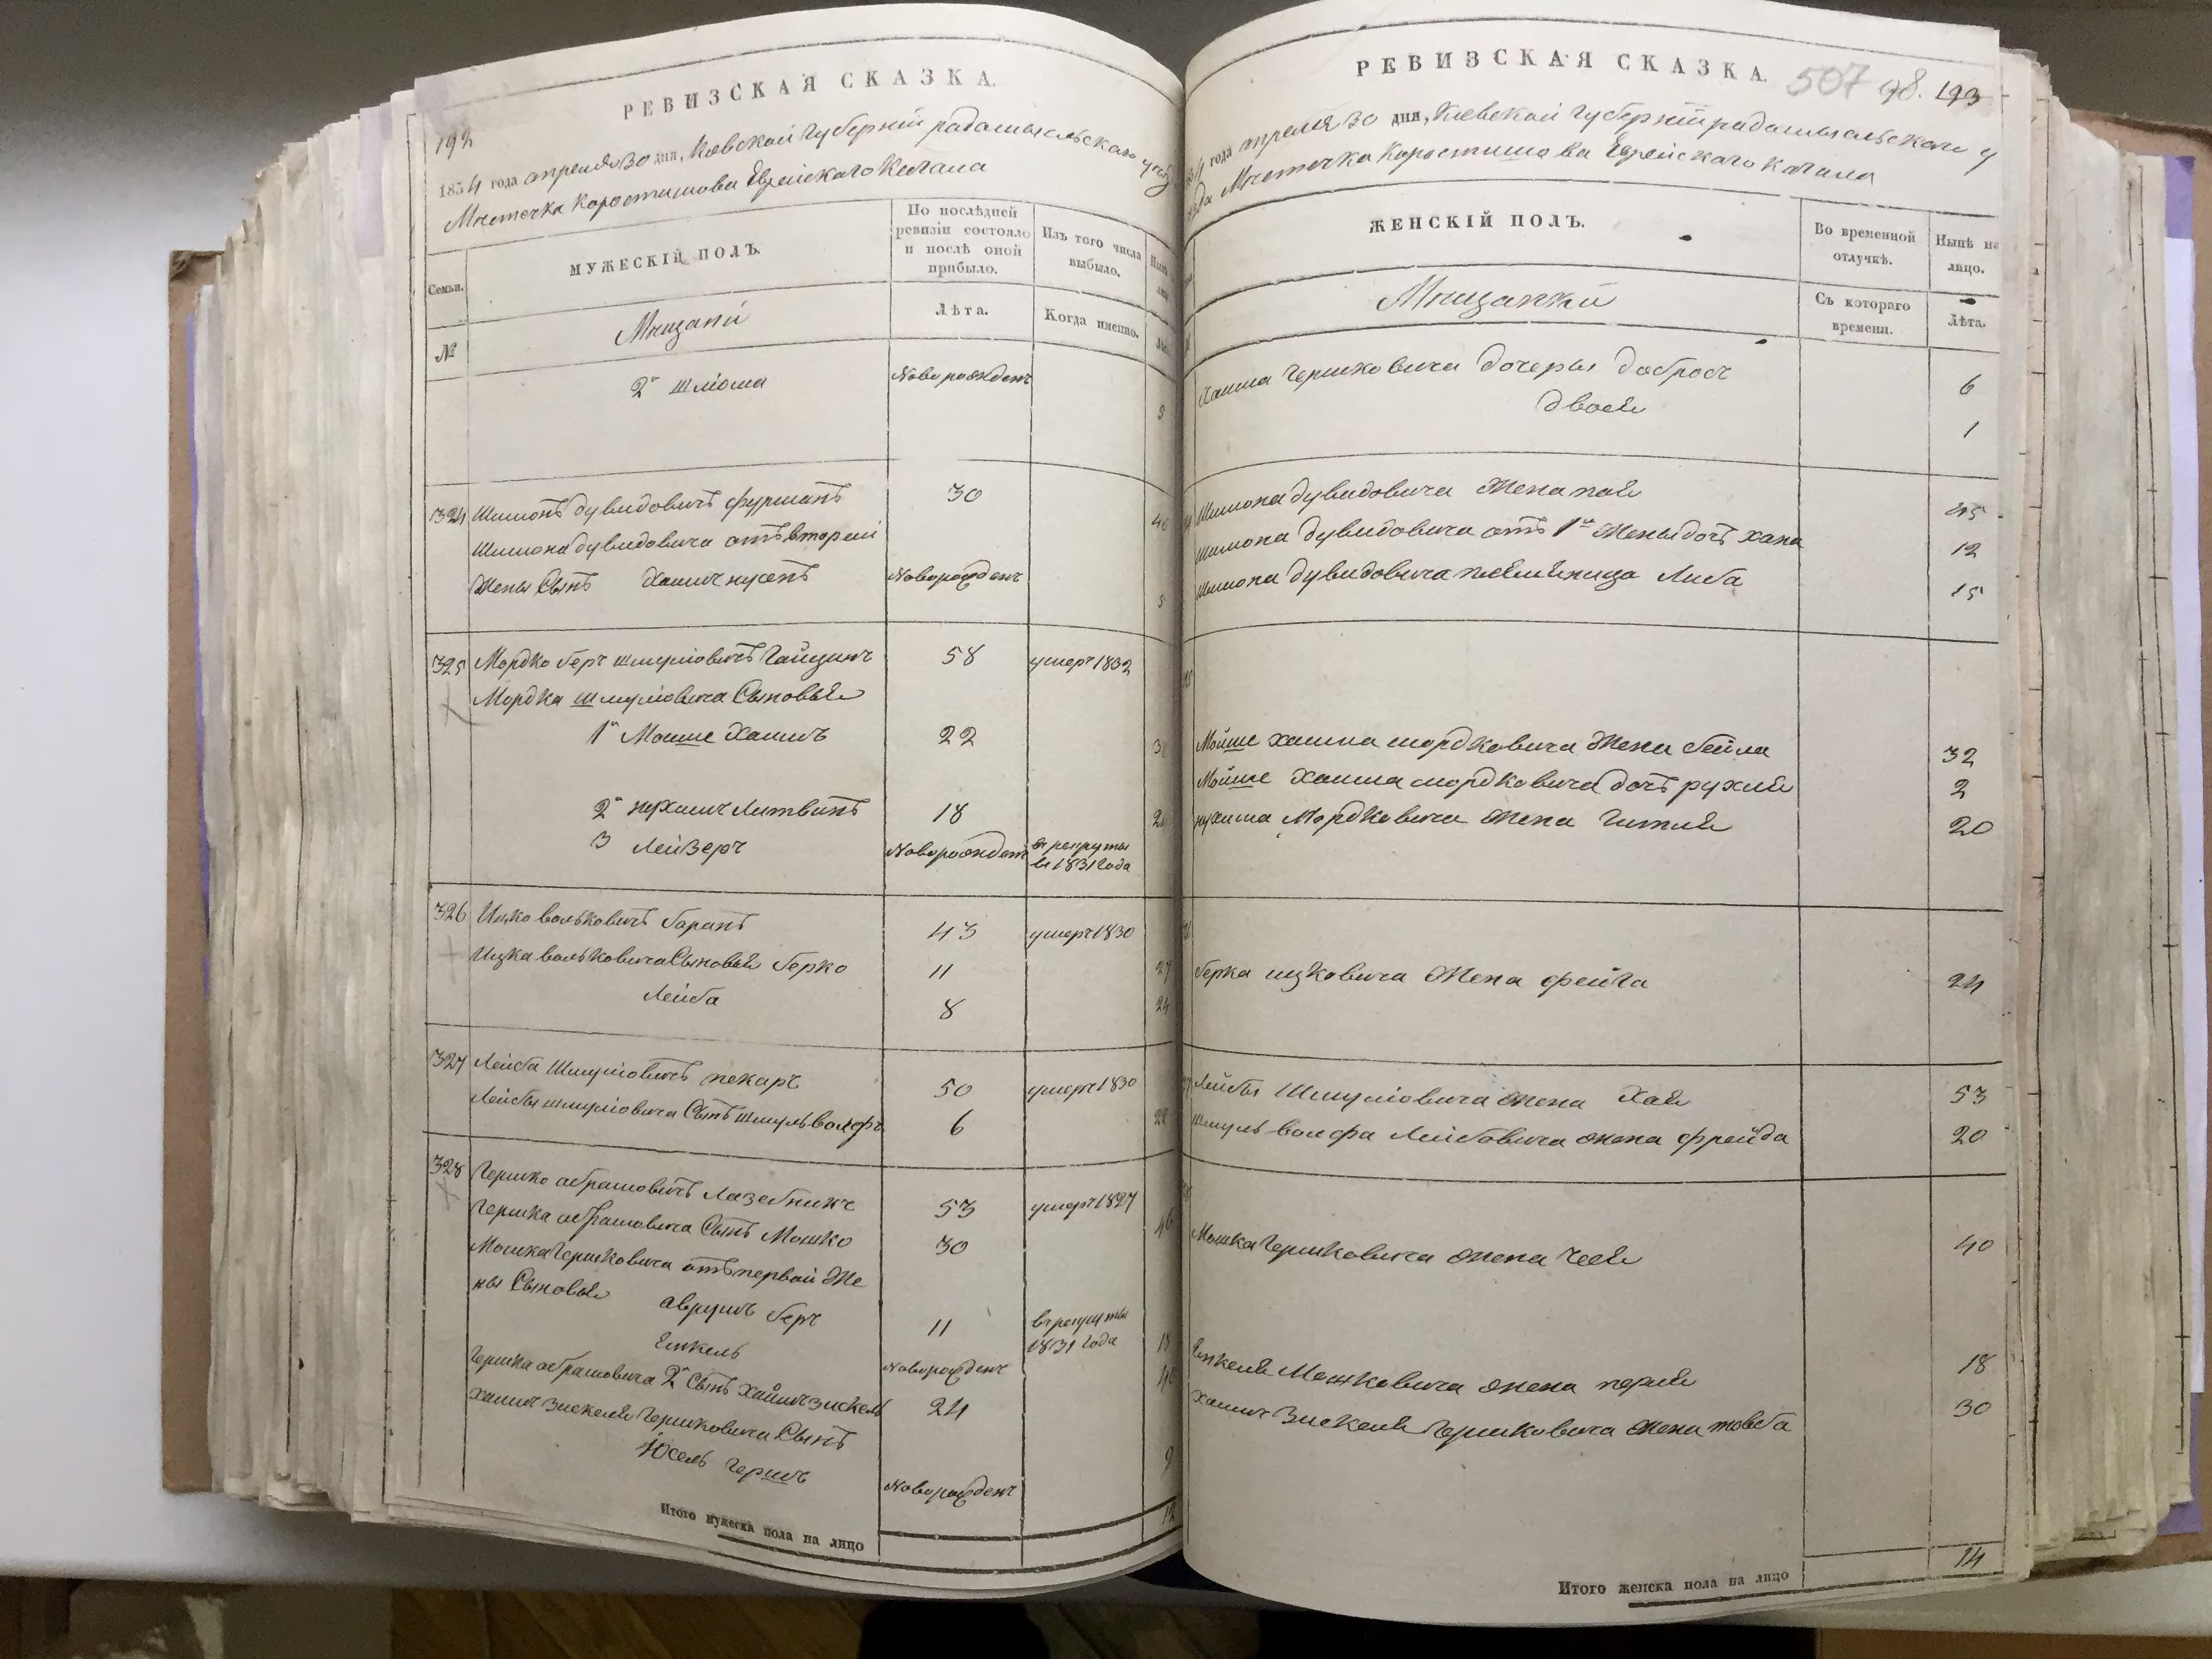 РЕВИЗСКАЯ СКАЗКА.
192
1834 года апреля 30 дня, Киевской Губернии радомысльскаго уезда
Местечка Коростишова Еврейскаго Кагала
Семьи.
МУЖЕСКІЙ ПОЛЪ.
По послѣдней ревизіи состояло и послѣ оной прибыло.
Изъ того числа выбыло.
№
Мещани
Лѣта.
Когда именно.
2й Шліома Новорожденъ 5
324 Шимонъ дувидовичъ фурманъ 30
Шимона дувидовича отъ второй
жены Сынъ Хаимъ нусенъ Новорожденъ 5
325 Мордко берь шмуліовичъ Гайцинъ 58 умеръ 1832
Мордка шмуліовича Сыновья
1й Мошше Хаимъ 22
2й нухимъ Литвинъ 18
3 Лейзеръ Новорожденъ в рекруты в 1831 Года
326 Ицко вольковичъ баранъ 43 умеръ 1830
Ицка вольковича Сыновья берко 11 27
Лейба 8 24
327 Лейба Шмуліовичъ пекаръ 50 умеръ 1830
Лейбы шмуліовича Сынъ шмуль волфъ 6
328 Гершко абрамовичъ Лазебникъ 53 умеръ 1827
Гершка абрамовича Сынъ Мошко 30 46
Мошка Гершковича отъ первой Же
ны Сыновья
аврумъ беръ 11 в рекруты 1831 Года
Енкель Новорожденъ 18
Гершка абрамовича 2й Сынъ хаимъ зискель 24 40
хаимъ зискеля Гершковича Сынъ
Юсель Гершъ Новорожденъ 9
Итого мужеска пола на лицо 12
РЕВИЗСКАЯ СКАЗКА. 507 98. 193
года апреля 30 дня, Киевской Губернии радомысльскаго у
езда Местечка Коростишова Еврейскаго Кагала
ЖЕНСКІЙ ПОЛЪ.
Во временной отлучкѣ.
Нынѣ на лицо.
Мещанки
Съ котораго времени.
Лѣта.
Хаима Гершковича дочеры доброс 6
двоея 1
Шимона дувидовича жена пая 45
шимона дувидовича отъ 1й жены дочь хана 12
шимона дувидовича племеница Либа 15
Мойше хаима мордковича жена бейла 32
Мойше Хаима мордковича дочъ рухля 2
нухима Мордковича жена Гитля 20
берка ицковича жена фейга 24
Лейбы Шмуліовича жена Хая 53
шмуль волфа Лейбовича жена фрейда 20
Мошка Гершковича жена 40
Енкеля Мошковича жена перля 18
хаимъ зискеля Гершковича жена товба 30
Итого женска пола на лицо 14